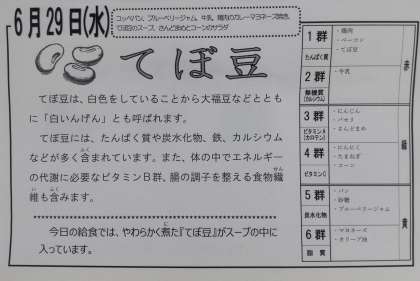 6月29日(水)
コッペパン、ブルーベリージャム、牛乳、鶏肉のカレーマヨネーズ焼き、
てぼ豆のスープ、さんどまめとコーンのサラダ
てぼ豆
てぼ豆は、白色をしていることから大福豆などととも
に「白いんげん」とも呼ばれます。
てぼ豆には、たんぱく質や炭水化物、鉄、カルシウム
などが多く含まれています。また、体の中でエネルギー
ふく
の代謝に必要なビタミンB群、腸の調子を整える食物繊
せん
維も含みます。
い ふく
今日の給食では、やわらかく煮た『てぼ豆』がスープの中に
に
入っています。
1群
たんぱく質
・鶏肉
・ベーコン
・てぼ豆
2群
無機質
(カルシウム)
・牛乳
赤
3群
ビタミンA
(カロテン)
・にんじん
・パセリ
・さんどまめ
4群
ビタミンC
・にんにく
・たまねぎ
・コーン
緑
5群
炭水化物
・パン
・砂糖
・ブルーベリージャム
6群
脂質
・マヨネーズ
・オリーブ油
黄